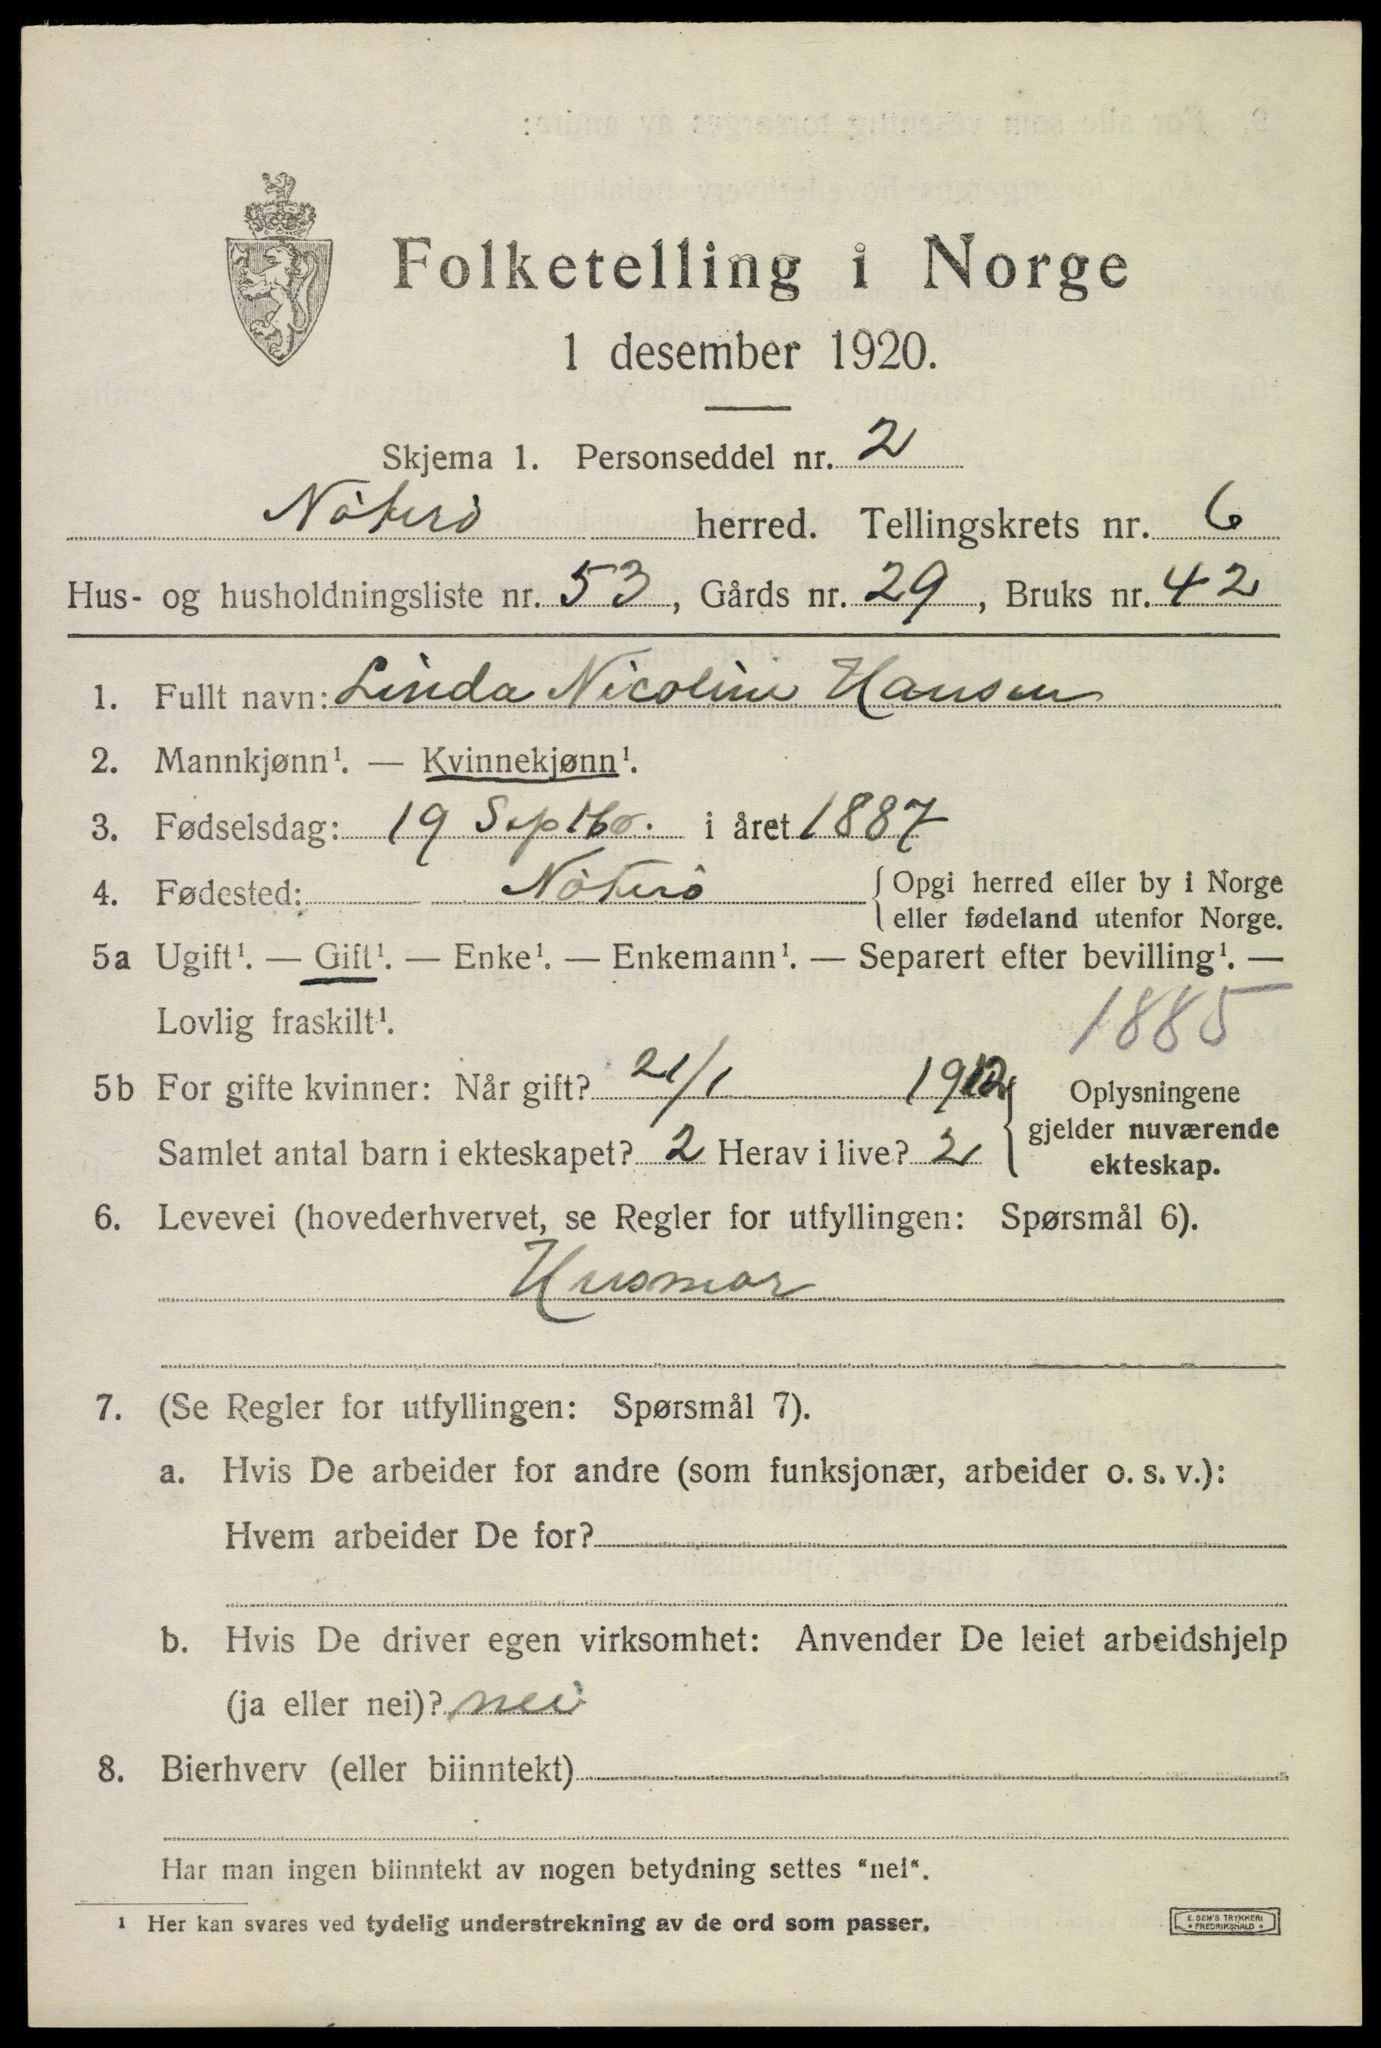 Folketelling i Norge
1 desember 1920.
Skjema 1. Personseddel nr. 2
Nöterö herred. Tellingskrets nr. 6
Hus- og husholdningsliste nr. 53, Gårds nr. 29, Bruks nr. 42
1. Fullt navn: Linda Nicoline Hansen
2. Mannkjønn¹. — Kvinnekjønn¹.
3. Fødselsdag: 19 Septbr. i året 1887
4. Fødested: Nöterö {Opgi herred eller by i Norge
eller fødeland utenfor Norge.
5a Ugift¹. — Gift¹. — Enke¹. — Enkemann¹. — Separert efter bevilling¹. —
Lovlig fraskilt¹. 1885
5b For gifte kvinner: Når gift? 21/1 1912
Samlet antal barn i ekteskapet? 2 Herav i live? 2
Oplysningene
gjelder nuværende
ekteskap.
6. Levevei (hovederhvervet, se Regler for utfyllingen: Spørsmål 6).
Husmor
7. (Se Regler for utfyllingen: Spørsmål 7).
a. Hvis De arbeider for andre (som funksjonær, arbeider o. s. v.):
Hvem arbeider De for?
b. Hvis De driver egen virksomhet: Anvender De leiet arbeidshjelp
(ja eller nei)? nei
8. Bierhverv (eller biinntekt)
Har man ingen biinntekt av nogen betydning settes "nei".
¹ Her kan svares ved tydelig understrekning av de ord som passer.
E. SEM'S TRYKKERI
• FREDRIKSHALD •